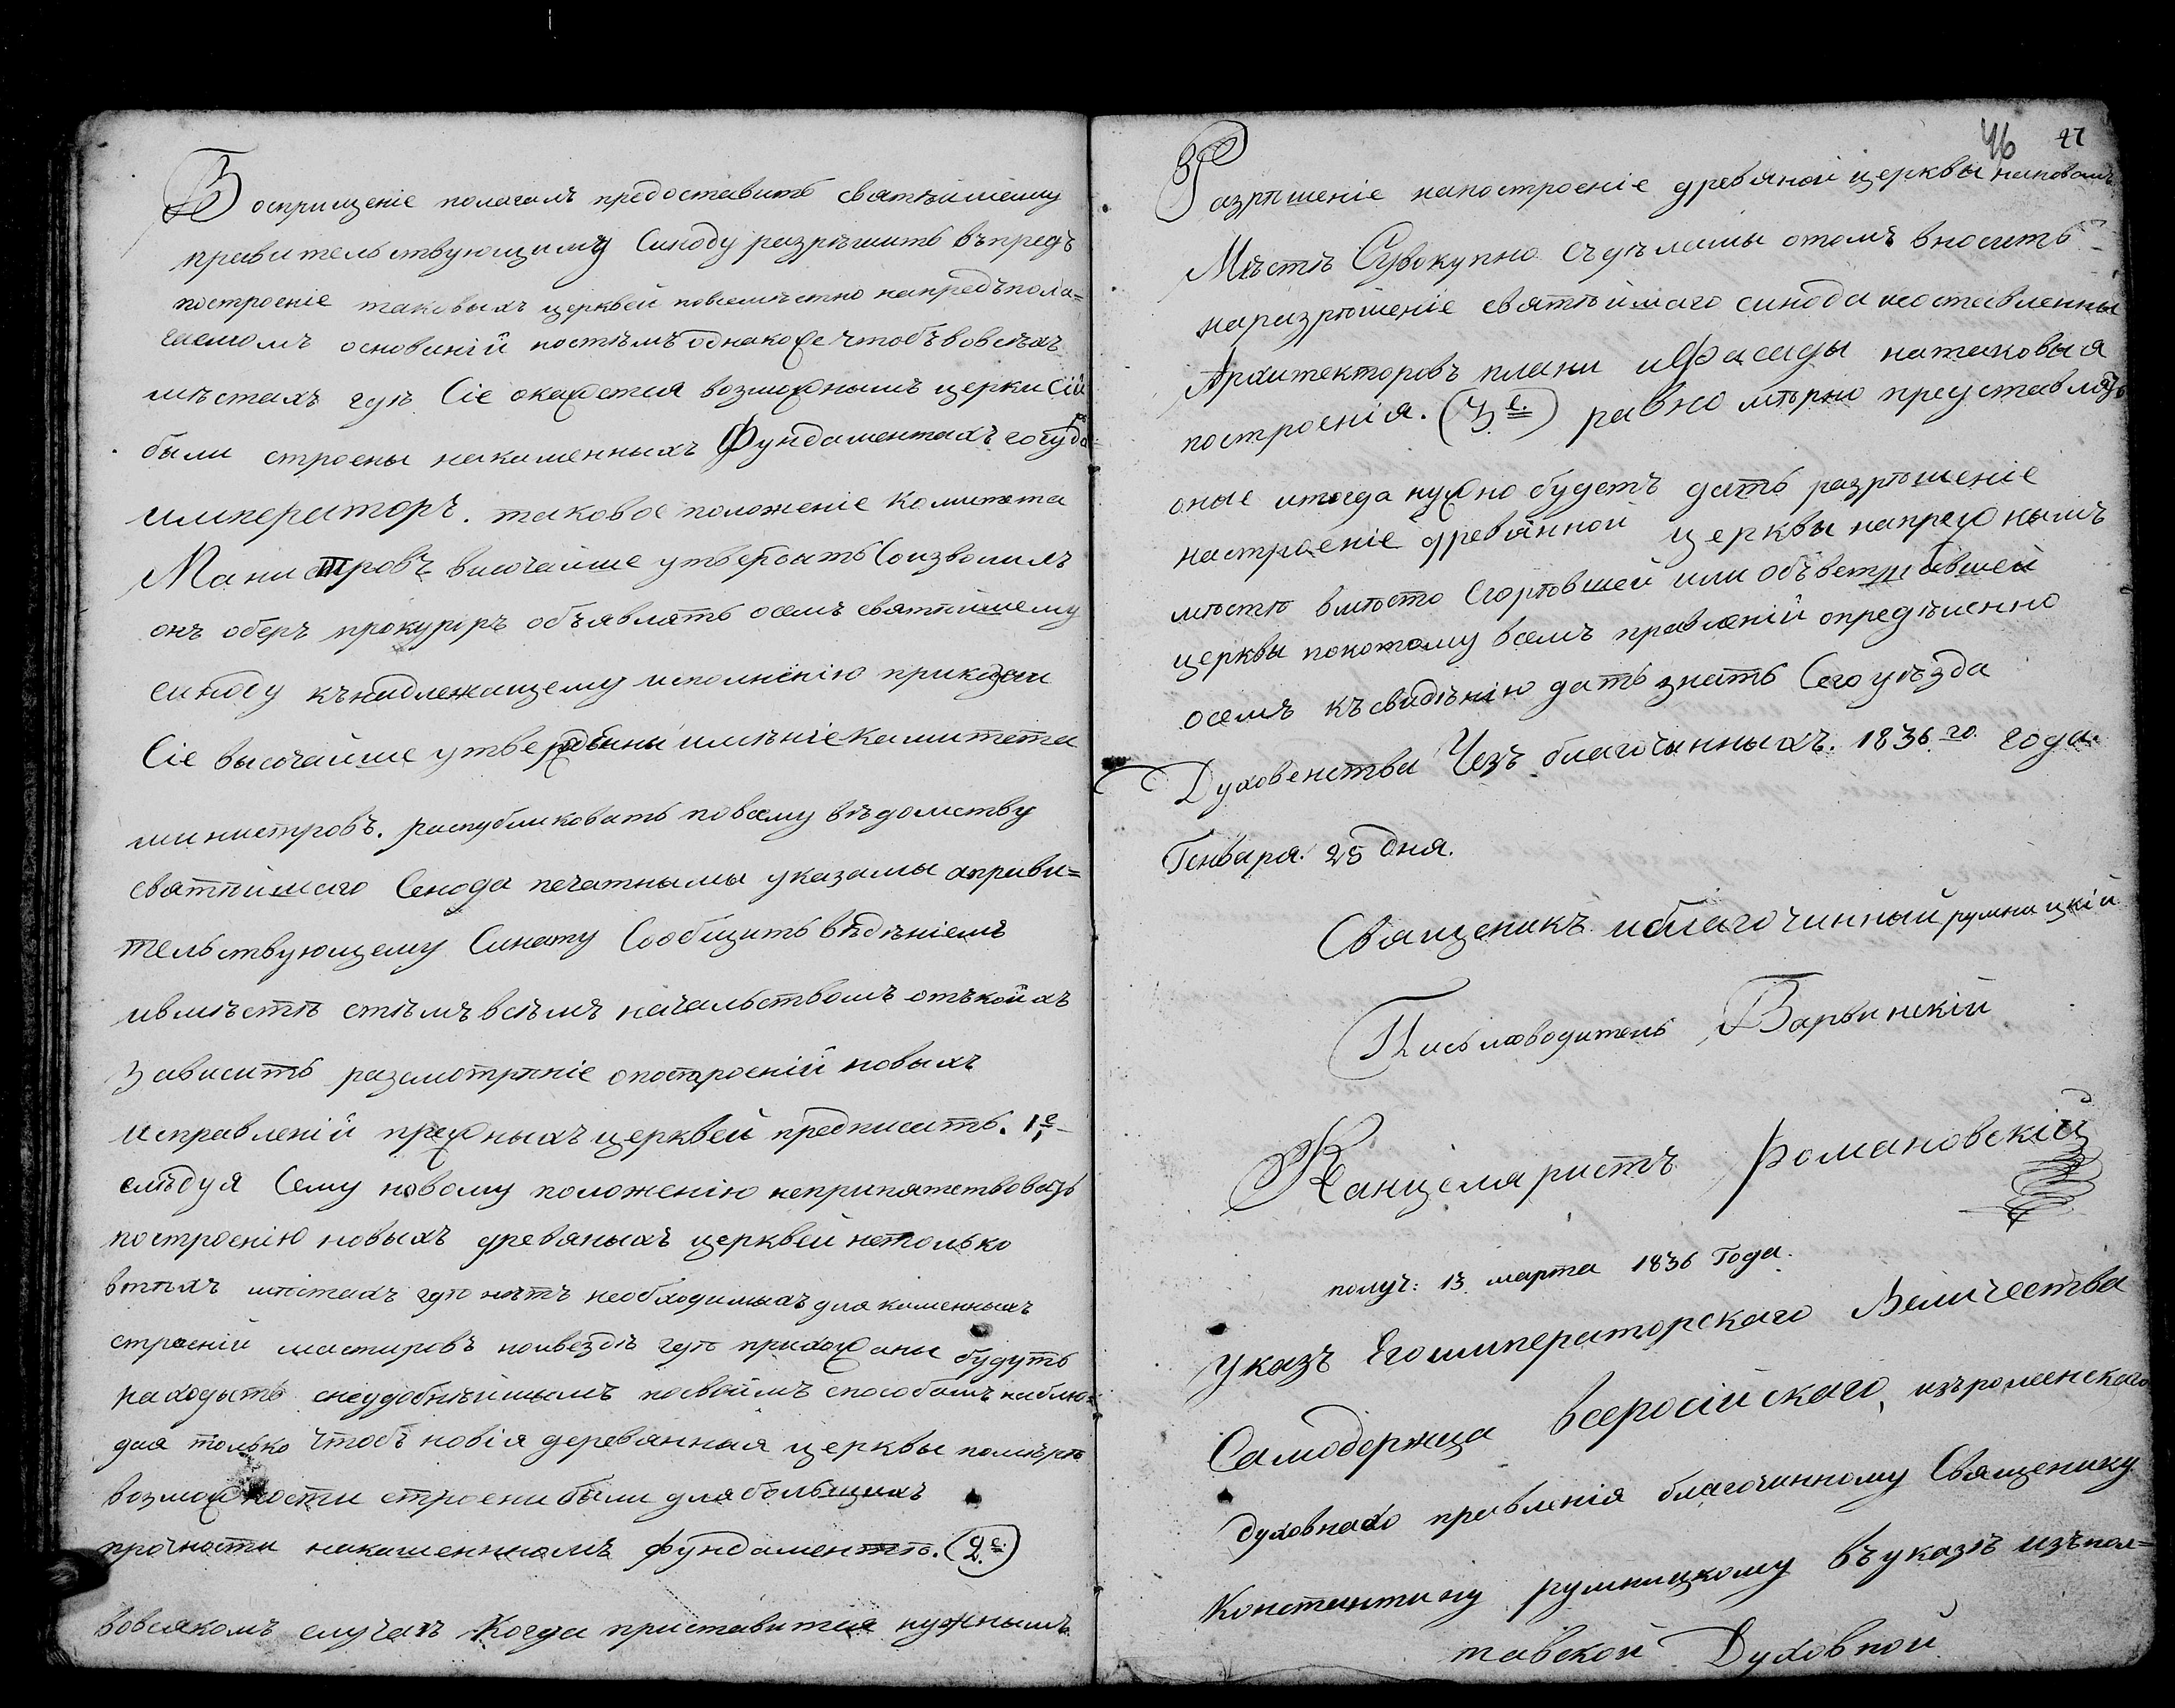 Восприщеніе полагалъ предоставить святѣйшему
правительствующиму Синоду разрѣшить въпредъ
построеніе таковыхъ церквей повсемѣстно напредъпола=
гаемомъ основаніи постѣмъ однакоже чтобъ вовсѣхъ
мѣстахъ гдѣ Сіе окажется возможнымъ церки Сій
были строены накаменныхъ Фундаментахъ госуда
императоръ. таковое положеніе Комитета
Манистровъ височайше утвердить Соизволилъ
онъ оберъ прокуроръ объявлять осемъ святѣйшему
синоду къ надлежащему исполненію приказали
Сіе высочайше утвержденны имѣніе Камитета
министровъ. распубликовать повсему вѣдомству
святѣйшаго Сенода печатнымы указамы априви=
тельствующему Синату Сообщить вѣдѣніемъ
ивмѣстѣ стѣмъ всѣмъ начальствомъ отъкойхъ
зависитъ разсмотрѣніе опостроеній новыхъ
исправленій прежныхъ церквей предписать. 1е
слѣдуя Сему новому положенію непрепятствовать
построенію новыхъ древяныхъ церквей нетолько
втѣхъ мѣстахъ гдѣ нѣтъ необходимыхъ для каменныхъ
строеній мастировъ ноивездѣ гдѣ прихожаны будутъ
находыть сиеудобнѣйшымъ посвоимъ способамъ наблю=
дая только Чтобъ новія деревянная церквы помѣрѣ
возможности строени были для большихъ
прочности накаменномъ фундаментѣ. (2е.)
вовсякомъ случаѣ Когда приставится нужнымъ
46 47
Разрѣшеніе напостроеніе древяной церквы нановомъ
Мѣстѣ Сувокупно съдѣламы отомъ вносить
наразрѣшеніе святѣймаго синода исоставленны
Архитекторовъ плани иФасады натаковыя
построенія. (3е.) равно мѣрно представлять
оные итогда нужно будетъ дать разрѣшеніе
настроеніе древянной церквы напрежнымъ
мѣстѣ вмѣсто Сгорѣвшей или объветшавшей
церквы покотому всемъ правленій опредѣленно
осемъ къ свидѣнію дать знать Сего уѣзда
Духовенства Чезъ благочинныхъ. 1836го года
Генваря 25 дня.
Священикъ иблагочинный румницкій
Письмоводитель Варвинскій
Канцеляристъ Романовскій
получ: 13 марта 1836 Года.
Указъ Егоимператорскаго Величества
Самодержца всеросійскаго, изъроменскаго
духовнаго правленія благочинному Священику
Констинтину румницкому въуказѣ изъпол=
тавской Духовной